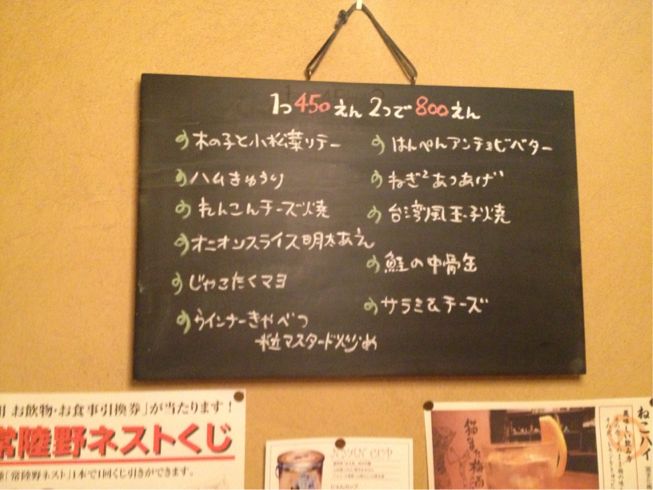 1つ450えん 2つで800えん
木の子と小松菜ソテー
ハムきゅうり
れんこんチーズ焼
オニオンスライス明太あえ
じゃこたくマヨ
ウインナーきゃべつ
粒マスタード炒め
はんぺんアンチョビバター
ねぎ²あつあげ
台湾風玉子焼
鮭の中骨缶
サラミ&チーズ
お飲物・お食事引換券」が当たります!
常陸野ネストくじ
「常陸野ネスト」1本で1回くじ引きができます。
猫また梅酒
ねこハイ